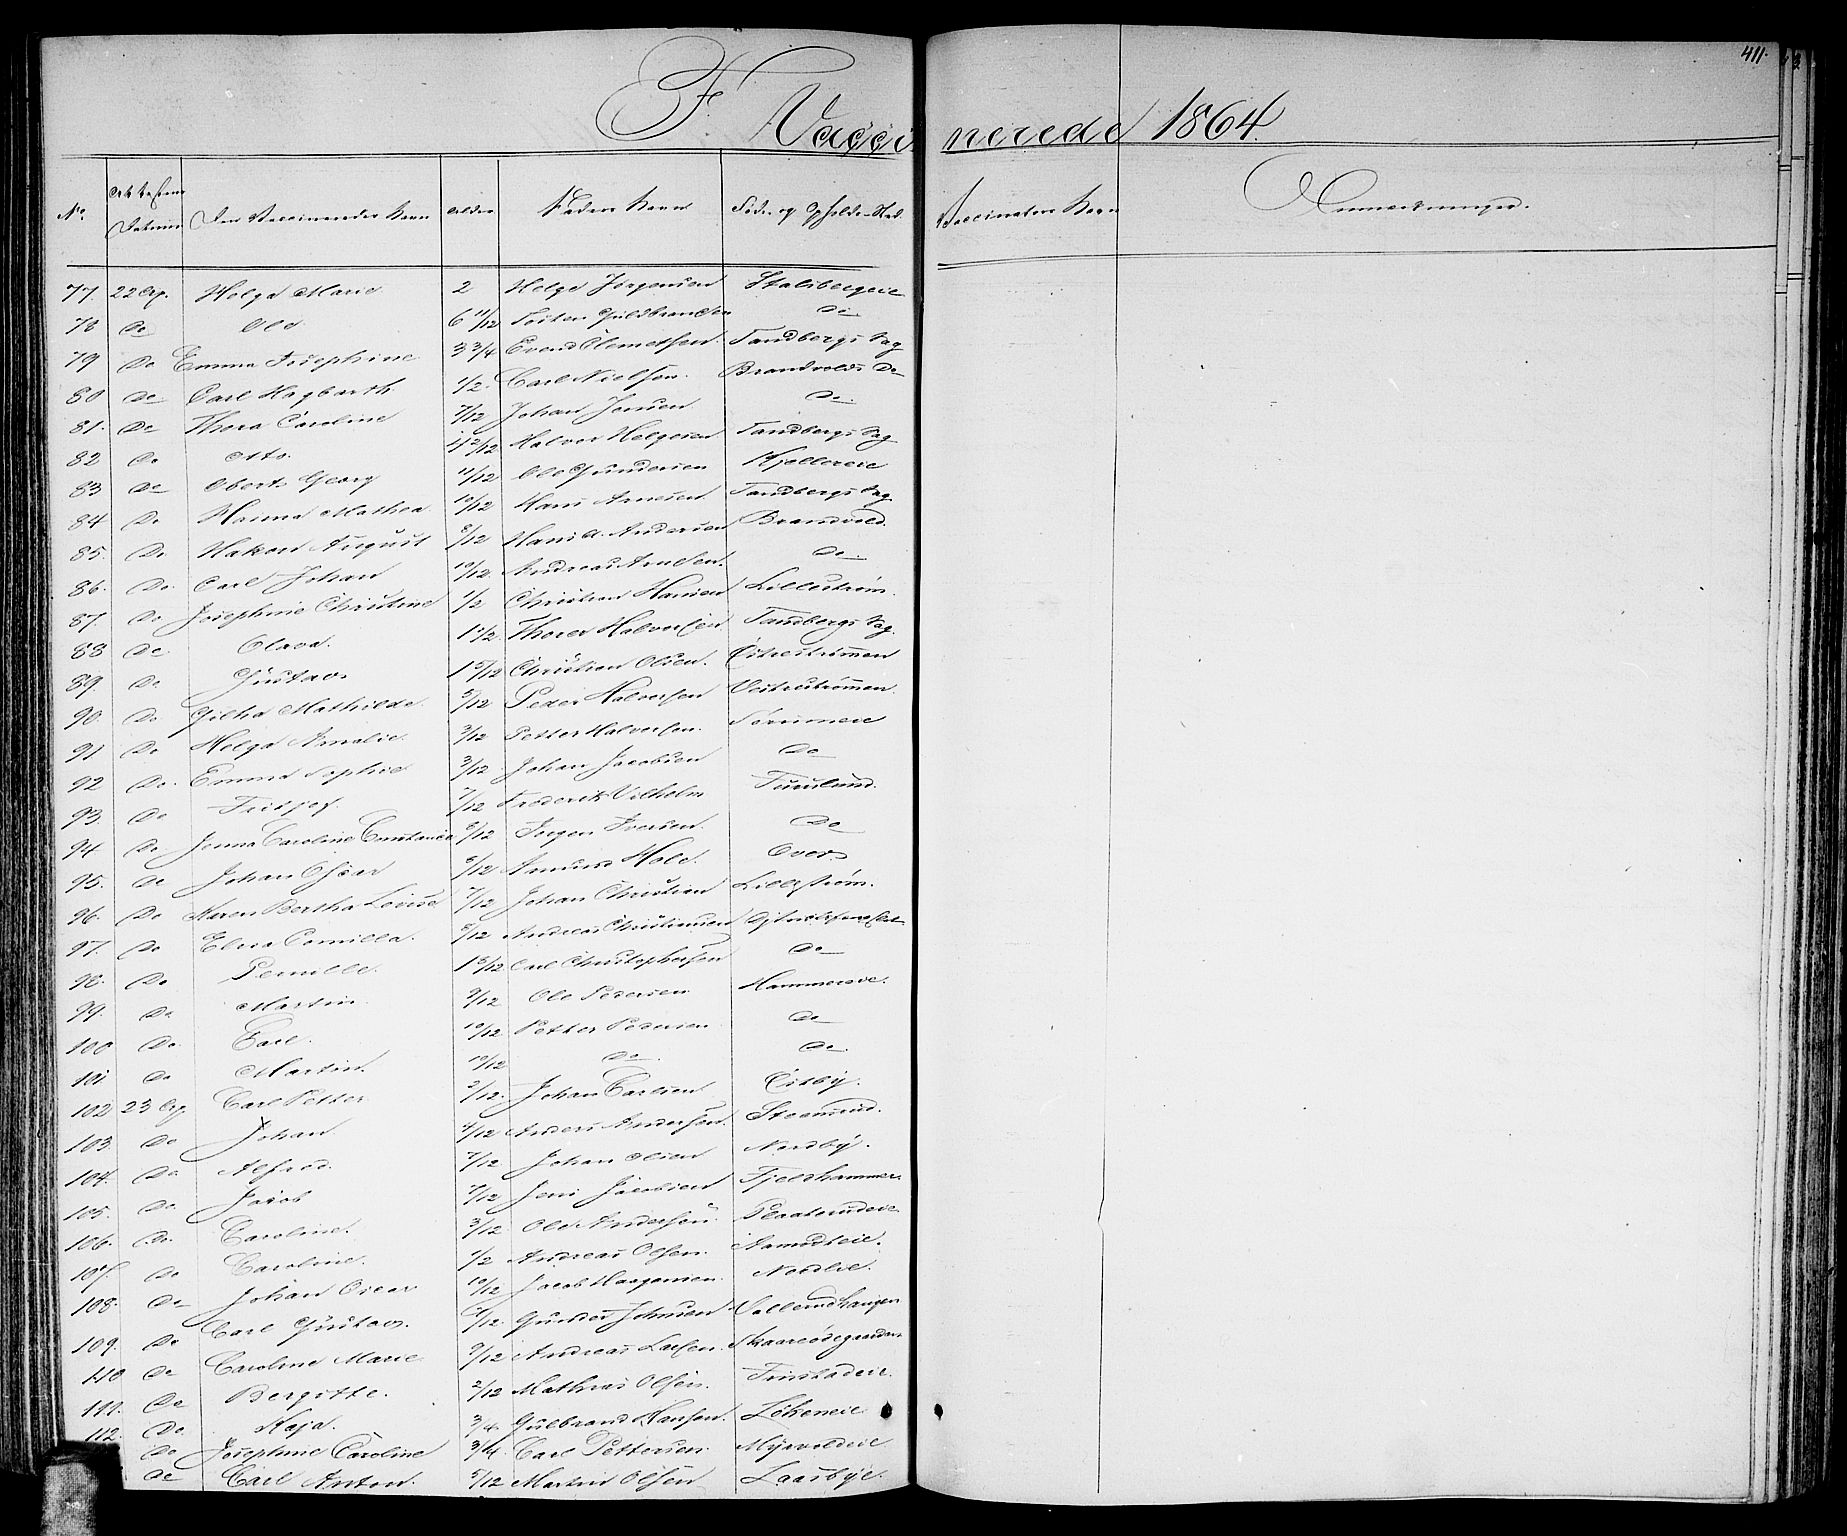 411.
F. Vaccinerede 1864.
No. Datum Den Vaccineredes Navn Alder Faders Navn Føde og Opholds-Sted Vaccinators Navn Anmærkninger.
77. 22 Helga Marie 2 Helge Jørgensen Stalsbergeie
78 Do Ole 6 11/12 Torsten Guldbrandsen Do
79 Do Emma Josephine 3 3/4 Evend Clemetsen Sandbergs Sag
80 Do Carl Hagbarth 1/2 Carl Nielsen Brandvolds Do
81. Do Thora Caroline 7/12 Johan Jensen Do.
82 Do Otto. 1 2/12 Halvor Helgesen Sandbergs Sag
83 Do Obert Georg 11/12 Ole Gundersen Kjellereie
84 Do Hanna Mathea 10/12 Hans Arnesen Sandbergs Sag
85. Do Hakon August 8/12 Hans A. Andersen Brandvold.
86. Do. Carl Johan 10/12 Andreas Arnesen. Do.
87. Do Josephine Christine 1/2 Christian Hansen Lillestrøm.
88 Do Olava. 1 1/2 Thorer Halvorsen Sandbergs Sag
89. Do Gustav. 1 5/12 Christian Olsen. Østrestrømmen
90. Do Gilha Mathilde. 5/12 Peder Halvorsen Vestrestrømmen.
91 Do Helga Amalie. 3/12 Petter Halvorsen. Sørumeie
92 Do. Emma Sophie 3/12 Johan Jacobsen Do
93. Do Fritjof. 7/12 Frederik Vilhelm
94 Do Jenna Caroline Constance 8/12 Jørgen Iversen. Do
95. Do Johan Oscar 8/12 Amund Hole.
96. Do Karen Bertha Lovise 7/12 Johan Christian Lillestrøm.
97. Do Elvia Camilla. 8/12 Andreas Christiansen
98. Do Pernille. 1 8/12 Carl Christophersen Do
99. Do Martin. 9/12 Ole Pedersen Hammereie.
100 Do Carl. 10/12 Petter Pedersen Do
101 Do Martin. 10/12 Do. Do.
102 23 Carl Petter 2/12. Johan Carlsen Østby.
103. Do Johan 4/12 Anders Andersen.
104. Do Alfred. 7/12 Johan Olsen Nordby.
105. Do Jacob 7/12 Jens Jacobsen Fjeldhammer
106. Do. Caroline. 3/12 Ole Andersen
107. Do Caroline. 1/2 Andreas Olsen. Aamodteie.
108. Do Johan Oscar 10/12 Jacob Haagensen. Nordlie.
109. Do Carl Gustav. 7/12 Gunder Johnsen
110 Do Caroline Marie 9/12 Andreas Larsen. Skaareødegaarden
111. Do Bergitte. 2/12 Mathias Olsen. Finstadeie.
112. Do Kaja. 3/4 Gulbrand Hansen. Løkeneie
Do Josephine Caroline 3/4 Carl Pettersen Myrvoldeie
Do Carl Anton. 5/12 Martin Olsen Laasbye.